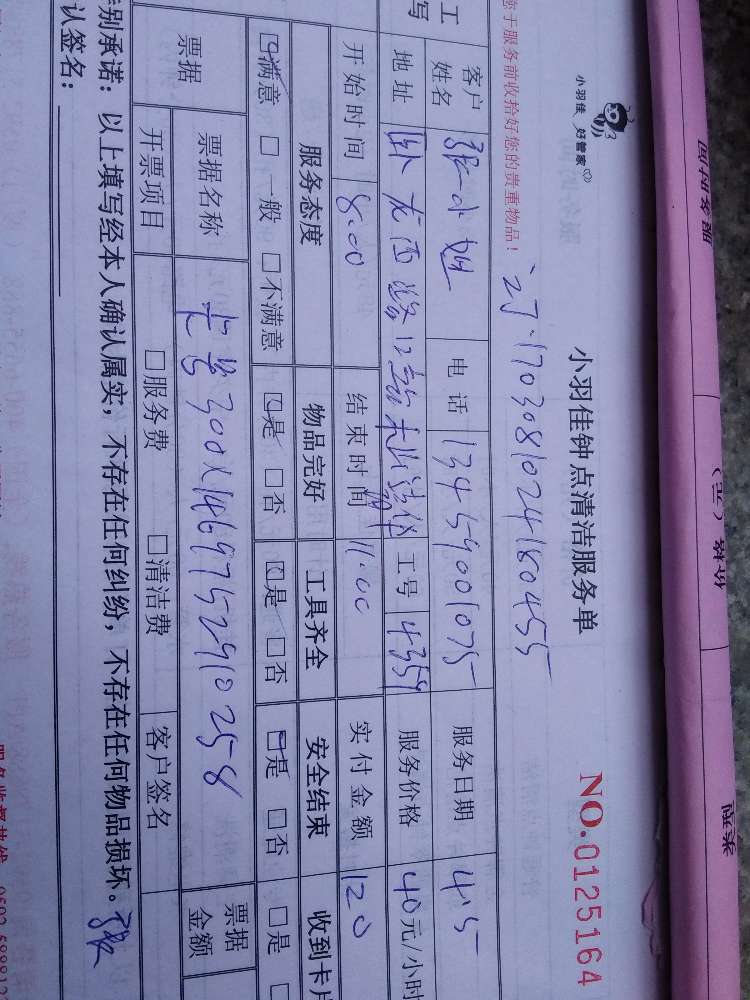 小羽佳 好管家
小羽佳钟点清洁服务单
NO.0125164
您于服务前收拾好您的贵重物品！
订:1703081024180455
工
写
客户姓名 张小姐 电话 13459001075 服务日期 4.5
地址 工号 4359 服务价格 40元/小时
开始时间 8:00 结束时间 11:00 实付金额 120
服务态度 物品完好 工具齐全 安全结束 收到卡片
☑满意 □一般 □不满意 ☑是 □否 ☑是 □否 □是 □否 □是
票据 票据名称 卡号30011469752910258 票据金额
开票项目 □服务费 □清洁费 客户签名
别承诺：以上填写经本人确认属实，不存在任何纠纷，不存在任何物品损坏。张
认签名：